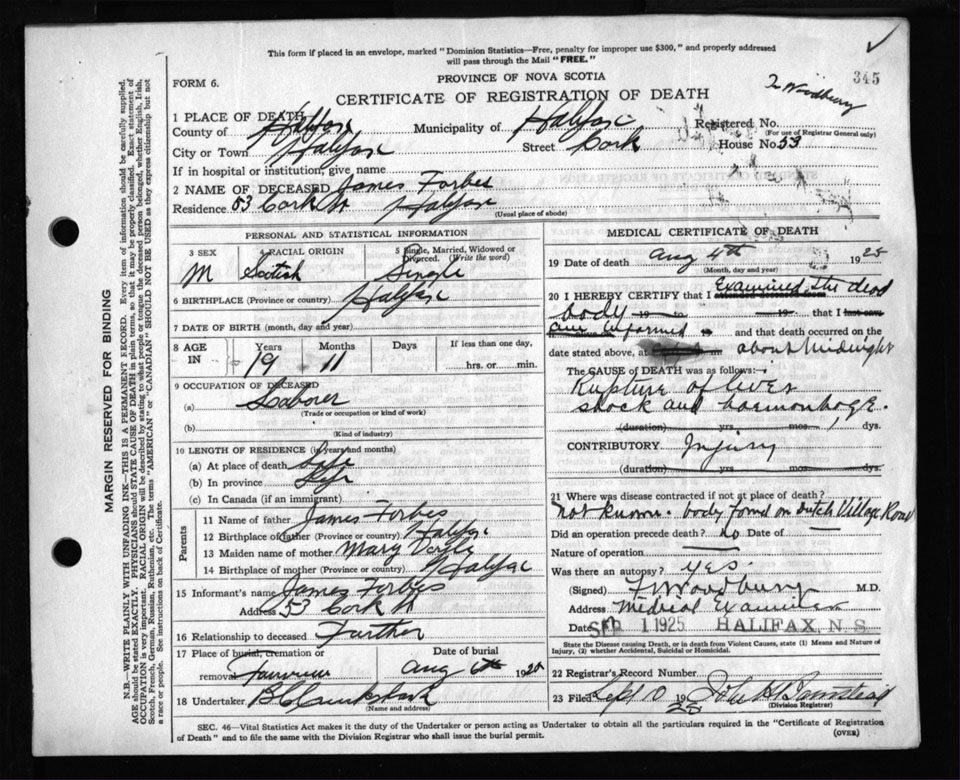 This form if placed in an envelope, marked "Dominion Statistics—Free, penalty for improper use $300," and properly addressed
will pass through the Mail "FREE."
345
FORM 6.
PROVINCE OF NOVA SCOTIA
CERTIFICATE OF REGISTRATION OF DEATH
Woodbury
1 PLACE OF DEATH
County of Halifax Municipality of Halifax Registered No.
(For use of Registrar General only)
City or Town Halifax Street Cork House No. 53
If in hospital or institution, give name
2 NAME OF DECEASED James Forbes
Residence 53 Cork St Halifax
(Usual place of abode)
PERSONAL AND STATISTICAL INFORMATION
3 SEX 4 RACIAL ORIGIN 5 Single, Married, Widowed or Divorced. (Write the word)
M Scotish Single
6 BIRTHPLACE (Province or country) Halifax
7 DATE OF BIRTH (month, day and year)
8 AGE IN Years Months Days If less than one day,
19 11 hrs. or min.
9 OCCUPATION OF DECEASED
(a) Laborer
(Trade or occupation or kind of work)
(b)
(Kind of industry)
10 LENGTH OF RESIDENCE (in years and months)
(a) At place of death Life
(b) In province Life
(c) In Canada (if an immigrant)
Parents
11 Name of father James Forbes
12 Birthplace of father (Province or country) Halifax
13 Maiden name of mother Mary
14 Birthplace of mother (Province or country) Halifax
15 Informant's name James Forbes
Address 53 Cork St
16 Relationship to deceased Farther
17 Place of burial, cremation or removal Date of burial
Fairview Aug 6th 1925
18 Undertaker
(Name and address)
MEDICAL CERTIFICATE OF DEATH
19 Date of death Aug 4th 1925
(Month, day and year)
20 I HEREBY CERTIFY that I attended deceased from Examined the dead
body 19 to 19 that I last saw
am informed 19 and that death occurred on
date stated above, at about Midnight
The CAUSE OF DEATH was as follows:
Rupture of liver
shock and haemorrhage.
(duration) yrs mos. dys.
CONTRIBUTORY Injury
(duration) yrs mos. dys.
21 Where was disease contracted if not at place of death?
Not known - body found on Dutch Village Road
Did an operation precede death? No Date of
Nature of operation
Was there an autopsy? Yes.
(Signed) F Woodbury M.D.
Address Medical Examiner
Date SEP 1 1925 HALIFAX, N.S.
State the Disease causing Death, or in death from Violent Causes, state (1) Means and Nature of
Injury, (2) whether Accidental, Suicidal or Homicidal.
22 Registrar's Record Number
23 Filed Sept 10 1925 John H
(Division Registrar)
SEC. 46—Vital Statistics Act makes it the duty of the Undertaker or person acting as Undertaker to obtain all the particulars required in the "Certificate of Registration
of Death" and to file the same with the Division Registrar who shall issue the burial permit.
(OVER)
MARGIN RESERVED FOR BINDING
N.B.—WRITE PLAINLY WITH UNFADING INK—THIS IS A PERMANENT RECORD. Every item of information should be carefully supplied.
AGE should be stated EXACTLY. PHYSICIANS should STATE CAUSE OF DEATH in plain terms, so that it may be properly classified. Exact statement of
OCCUPATION is very important. RACIAL ORIGIN will be described by stating to what people or tongue the deceased person belonged, whether English, Irish,
Scotch, French, German, Russian, Ruthenian, etc. The terms "AMERICAN" or "CANADIAN" SHOULD NOT BE USED as they express citizenship but not
a race or people. See instructions on back of Certificate.